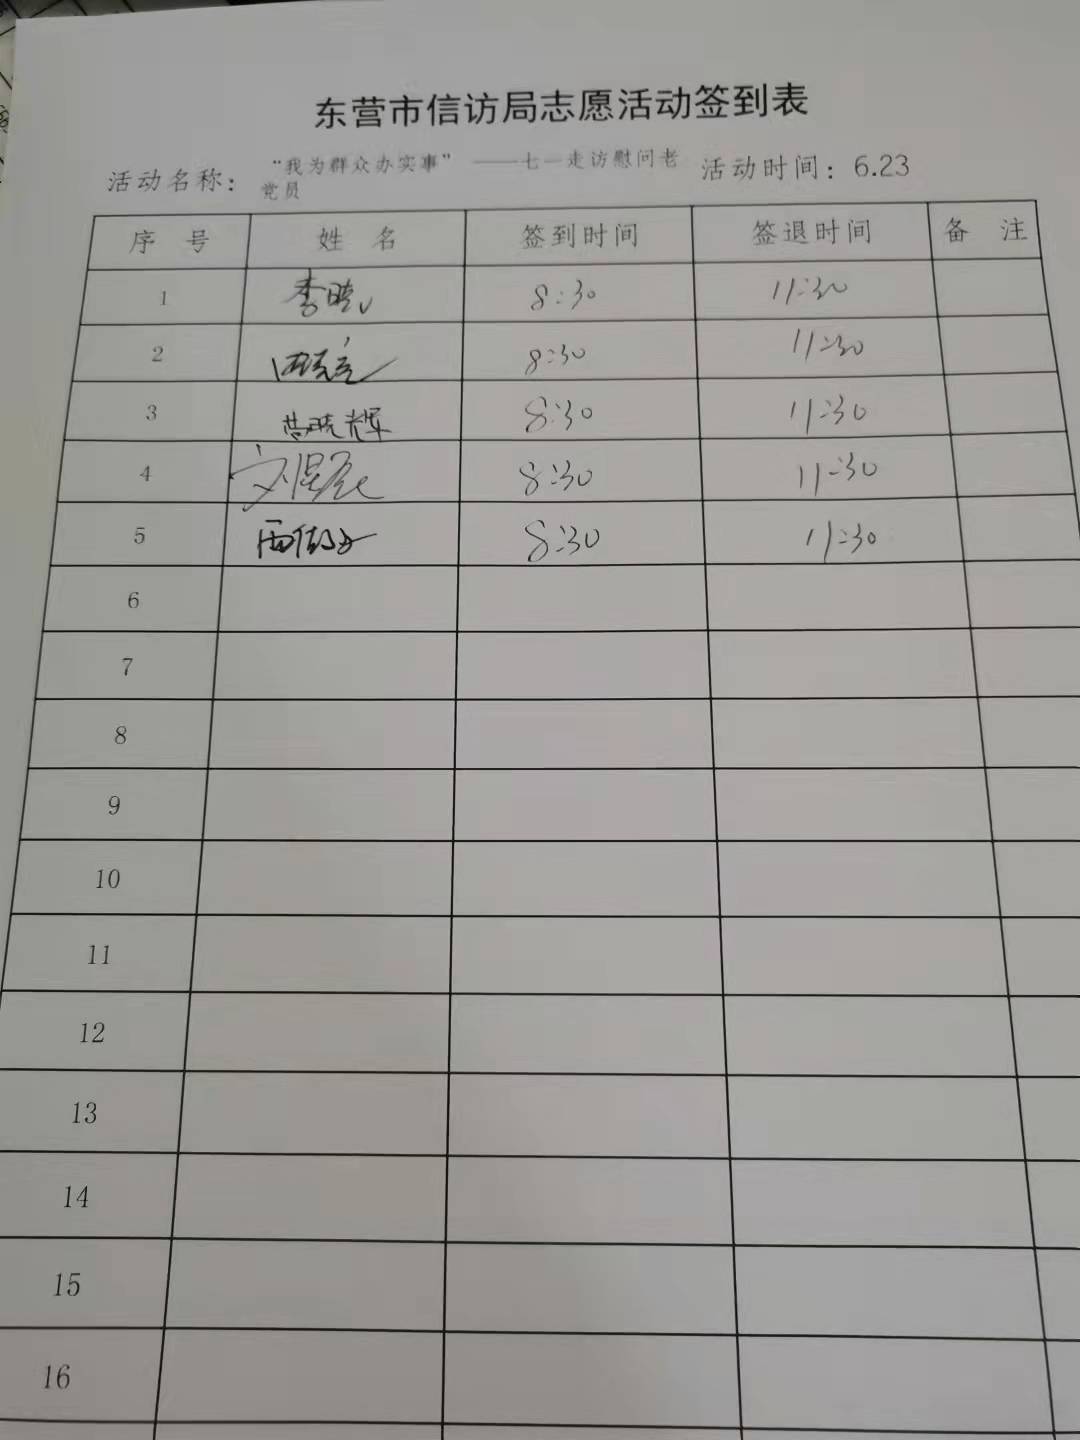 东营市信访局志愿活动签到表
活动名称：“我为群众办实事”——七一走访慰问老党员 活动时间：6.23
序 号 姓 名 签到时间 签退时间 备 注
1 李晓 8:30 11:30
2 8:30 11:30
3 晓辉 8:30 11:30
4 刘 8:30 11:30
5 8:30 11:30
6
7
8
9
10
11
12
13
14
15
16